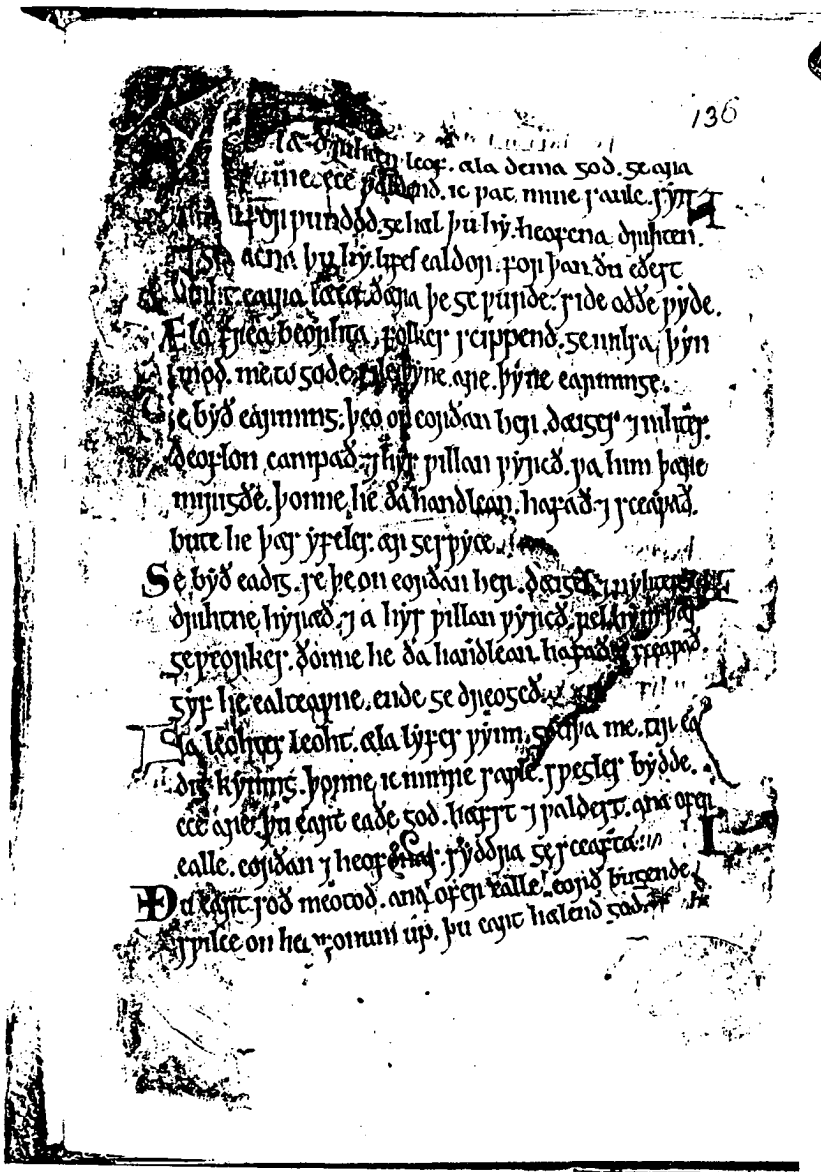 136
la drihten leof. æla dema god. geara
me ece ƿaldend. ic ƿat mine saule. syn
forƿundod gehæl þu hy. heofena drihten.
⁊ gelacna þu hy. lifes ealdor. forþan ðu eðest
miht. ealra læca. ðæra þe geƿurde. side oððe ƿyde.
Æla frea beorhta, folkes scippend. gemilsa, þyn
mod. me to gode. sile þyne. are. þyne earminge.
Se byð earming. þe on eorðan her. dæiges ⁊ nihtes.
deoflon campað. ⁊ hys ƿillan ƿyrcð. ƿa him þære
mirigðe. þonne he ða handlean. hafað. ⁊ sceaƿað.
bute he þæs yfeles. ær gesƿyce.
Se byð eadig. se þe on eorðan her. dæiges ⁊ nyhtes
drihtne hyræð. ⁊ a hys ƿillan ƿyrcð. ƿel hym þæs
geƿeorkes. ðonne he ða handlean. hafað ⁊ sceaƿað.
gyf he ealteaƿne. ende gedreogeð.
Æla leohtes leoht. æla lyfes ƿynn. getiþa me. tir ea
dig kyning. þonne ic minre saƿle. sƿegles bydde.
ece are. þu eart eaðe god. hæfst ⁊ ƿaldest. ana ofer
ealle. eorðan ⁊ heofonas. syddra gesceafta.
Ðu eart soð meotod. ana ofer ealle eorð bugende.
sƿilce on heofonum up. þu eart hælend god.